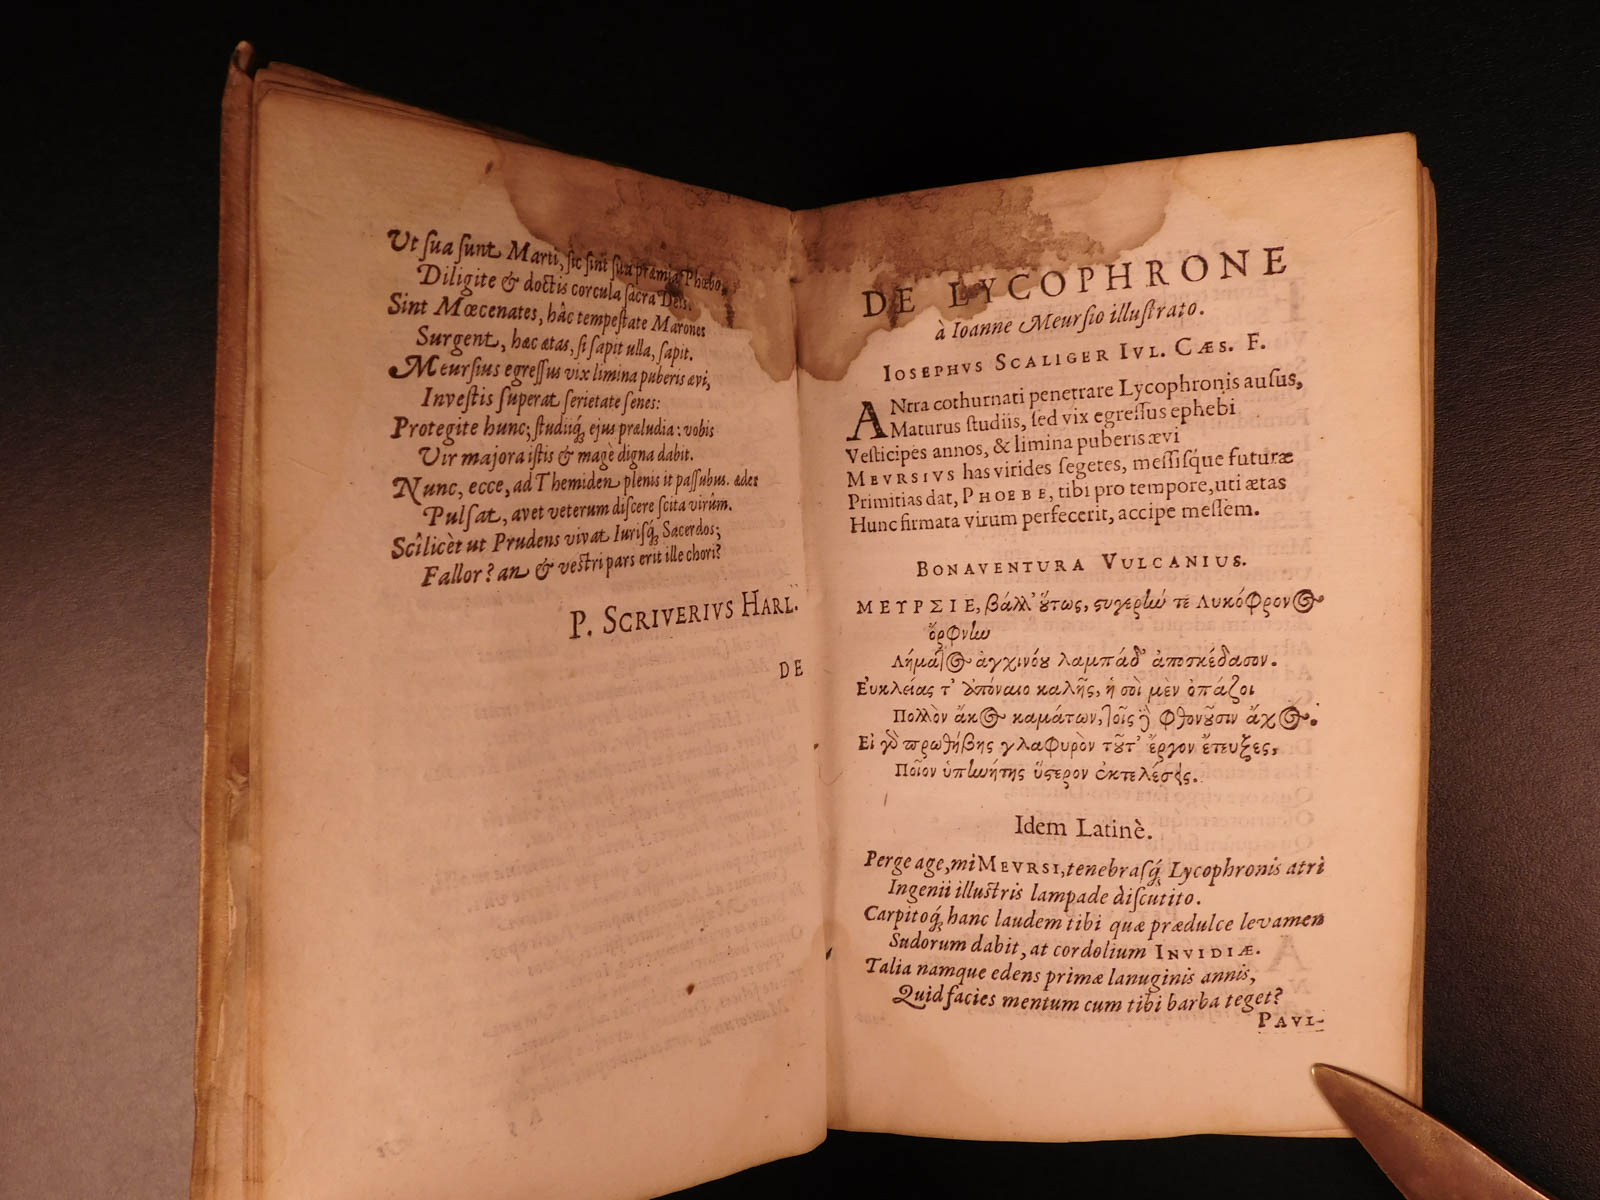 Ut ſua ſunt Marti, ſic ſint ſua præmia Phœbo,
Diligite & doctis corcula ſacra Deis.
Sint Mœcenates, hâc tempeſtate Marones
Surgent, hæc ætas, ſi ſapit ulla, ſapit.
Meurſius egreſſus vix limina puberis ævi,
Inveſtis ſuperat ſerietate ſenes:
Protegite hunc; ſtudiiq́; ejus præludia: vobis
Vir majora iſtis & magè digna dabit.
Nunc, ecce, ad Themiden plenis it paſſubus. ædes
Pulſat, avet veterum diſcere ſcita virûm.
Scîlicèt ut Prudens vivat Iuriſq́; Sacerdos;
Fallor? an & veſtri pars erit ille chori?
P. SCRIVERIVS HARL.
DE
DE LYCOPHRONE
à Ioanne Meurſio illuſtrato.
IOSEPHVS SCALIGER IVL. CÆS. F.
ANtra cothurnati penetrare Lycophronis auſus,
Maturus ſtudiis, ſed vix egreſſus ephebi
Veſticipes annos, & limina puberis ævi
MEVRSIVS has virides ſegetes, meſſiſque futuræ
Primitias dat, PHOEBE, tibi pro tempore, uti ætas
Hunc firmata virum perfecerit, accipe meſſem.
BONAVENTURA VULCANIUS.
ΜΕΥΡΣΙΕ, βάλλ' οὕτως, ςυγερlώ τε Λυκόφρονος
ὄρφνlω
Λήματος ἀγχινόου λαμπάδ' ἀποσκέδασον.
Ευκλείας τ' ἀπόναιο καλῆς, ἡ σοὶ μὲν ὀπάζοι
Πολλὸν ἄκος καμάτων, τοῖς δὲ φθονοῦσιν ἄχος.
Εἰ γὸ πρωθήβης γλαφυρὸν τοῦτ' ἔργον ἔτευξες,
Ποῖον ὑπlωήτης ὕςερον ἐκτελέσεις.
Idem Latinè.
Perge age, mi MEVRSI, tenebraſq́; Lycophronis atri
Ingenii illuſtris lampade diſcutito.
Carpitoq́; hanc laudem tibi quæ prædulce levamen
Sudorum dabit, at cordolium INVIDIÆ.
Talia namque edens primæ lanuginis annis,
Quid facies mentum cum tibi barba teget?
PAVL-